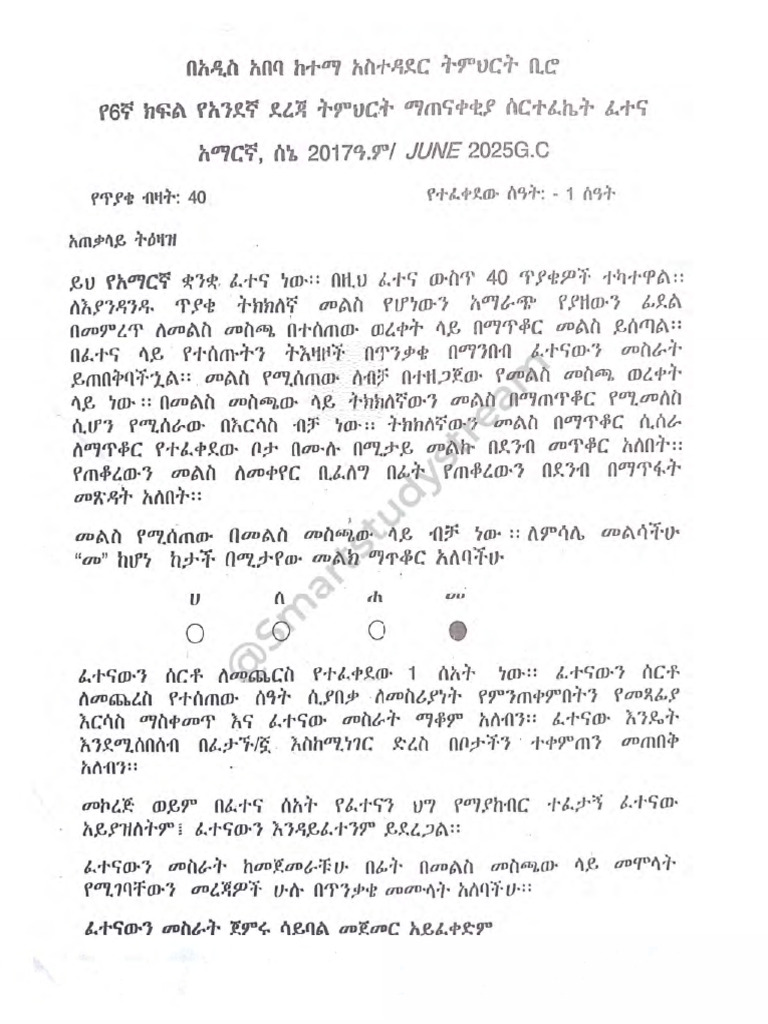 በአዲስ አበባ ከተማ አስተዳደር ትምህርት ቢሮ
የ6ኛ ክፍል የአንደኛ ደረጃ ትምህርት ማጠናቀቂያ ሰርተፊኬት ፈተና
አማርኛ, ሰኔ 2017ዓ.ም/ JUNE 2025G.C
የጥያቄ ብዛት: 40 የተፈቀደው ሰዓት: - 1 ሰዓት
አጠቃላይ ትዕዛዝ
ይህ የአማርኛ ቋንቋ ፈተና ነው፡፡ በዚህ ፈተና ውስጥ 40 ጥያቄዎች ተካተዋል፡፡
ለእያንዳንዱ ጥያቄ ትክክለኛ መልስ የሆነውን አማራጭ የያዘውን ፊደል
በመምረጥ ለመልስ መስጫ በተሰጠው ወረቀት ላይ በማጥቆር መልስ ይሰጣል፡፡
በፈተና ላይ የተሰጡትን ትእዛዞች በጥንቃቄ በማንበብ ፈተናውን መስራት
ይጠበቅባችኋል፡፡ መልስ የሚሰጠው ለብቻ በተዘጋጀው የመልስ መስጫ ወረቀት
ላይ ነው፡፡ በመልስ መስጫው ላይ ትክክለኛውን መልስ በማጠጥቆር የሚመለስ
ሲሆን የሚሰራው በእርሳስ ብቻ ነው፡፡ ትክክለኛውን መልስ በማጥቆር ሲሰራ
ለማጥቆር የተፈቀደው ቦታ በሙሉ በሚታይ መልኩ በደንብ መጥቆር አለበት፡፡
የጠቆረውን መልስ ለመቀየር ቢፈለግ በፊት የጠቆረውን በደንብ በማጥፋት
መጽዳት አለበት፡፡
መልስ የሚሰጠው በመልስ መስጫው ላይ ብቻ ነው ፡፡ ለምሳሌ መልሳችሁ
“መ” ከሆነ ከታች በሚታየው መልክ ማጥቆር አለባችሁ
ሀ ለ ሐ መ
ፈተናውን ሰርቶ ለመጨርስ የተፈቀደው 1 ሰአት ነው፡፡ ፈተናውን ሰርቶ
ለመጨረስ የተሰጠው ሰዓት ሲያበቃ ለመስሪያነት የምንጠቀምበትን የመጻፊያ
እርሳስ ማስቀመጥ እና ፈተናው መስራት ማቆም አለብን፡፡ ፈተናው እንዴት
እንደሚሰበሰብ በፈታኙ/ኟ እስከሚነገር ድረስ በቦታችን ተቀምጠን መጠበቅ
አለብን፡፡
መኮረጅ ወይም በፈተና ሰአት የፈተናን ህግ የማያከብር ተፈታኝ ፈተናው
አይያዝለትም፤ ፈተናውን እንዳይፈተንም ይደረጋል፡፡
ፈተናውን መስራት ከመጀመራቹሁ በፊት በመልስ መስጫው ላይ መሞላት
የሚገባቸውን መረጃዎች ሁሉ በጥንቃቄ መሙላት አለባችሁ፡፡
ፈተናውን መስራት ጀምሩ ሳይባል መጀመር አይፈቀድም
@Smartstudystream